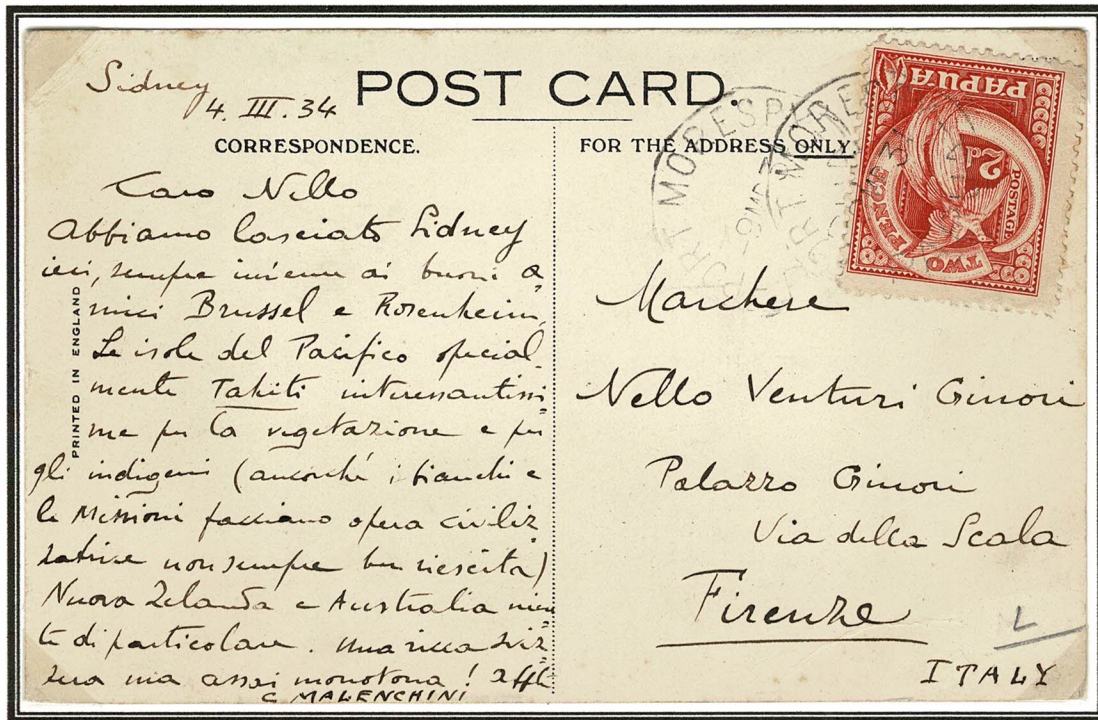 Sidney
4. III. 34
POST CARD.
CORRESPONDENCE.
FOR THE ADDRESS ONLY.
Caro Nello
Abbiamo lasciato Sidney
ieri, sempre insieme ai buoni a=
mici Brussel e Rosenheim.
Le isole del Pacifico special
mente Tahiti interessantissi
=me per la vegetazione e per
gli indigeni (ancorché i bianchi e
le Missioni facciano opera civiliz
zatrice non sempre ben riescita)
Nuova Zelanda e Australia nien
te di particolare. Una ricca sviz=
zera ma assai monotona! affti
C MALENCHINI
PRINTED IN ENGLAND
PORT MORESBY
PORT MORESBY
PAPUA
POSTAGE
2d
TWO PENCE
Marchese
Nello Venturi Ginori
Palazzo Ginori
Via della Scala
Firenze
ITALY
L